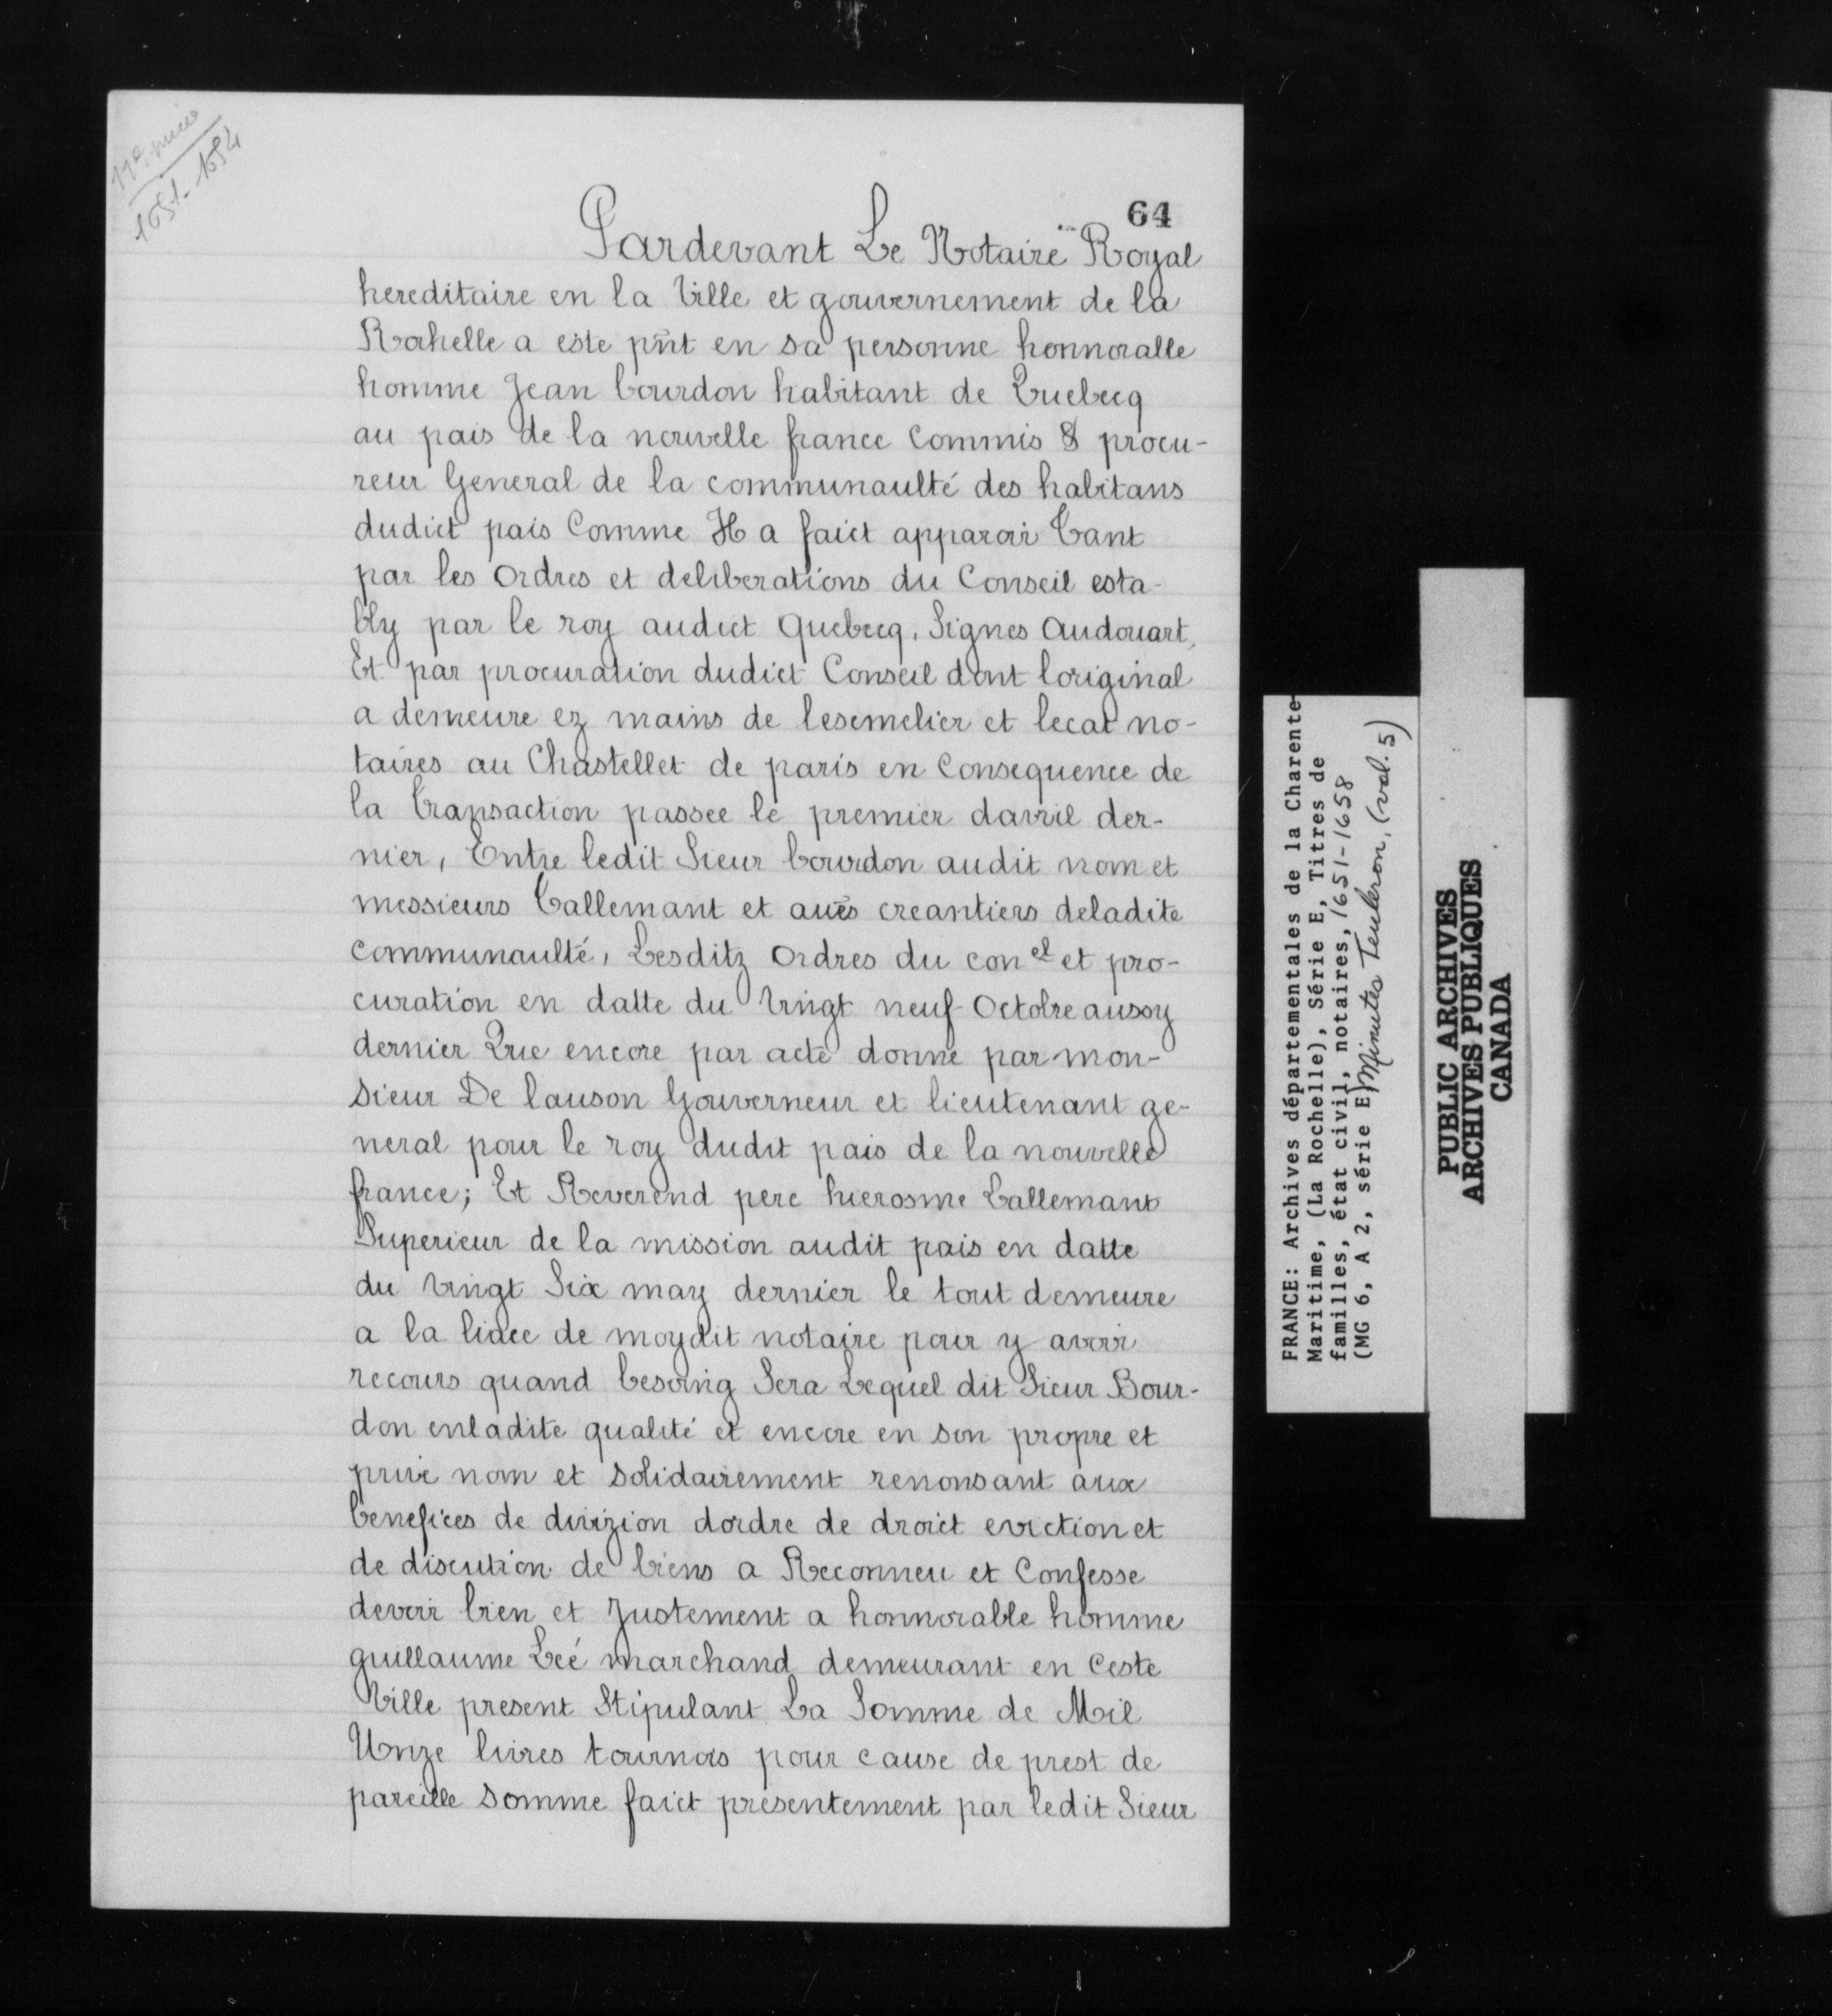 1651-1654
64
Pardevant Le Notaire Royal
hereditaire en la Ville et gouvernement de la
Rochelle a este pñt en sa personne honnoralle
homme Jean bourdon habitant de Quebecq
au pais de la nouvelle france Commis & procu-
reur General de la communaulté des habitans
dudict pais Comme Il a faict apparoir Tant
par les Ordres et deliberations du Conseil esta-
bly par le roy audict Quebecq, Signes Audouart,
Et par procuration dudict Conseil dont loriginal
a demeure ez mains de lesemelier et lecat no-
taires au Chastellet de paris en Consequence de
la Transaction passee le premier davril der-
nier, Entre ledit Sieur bourdon audit nom et
messieurs Tallemant et aues creantiers deladite
communaulté, Lesditz Ordres du con el et pro-
curation en datte du Vingt neuf Octobre aussy
dernier Que encore par acte donne par mon-
sieur De lauson Gouverneur et lieutenant ge-
neral pour le roy dudit pais de la nouvelle
france; Et Reverend pere hierosme Lallemant
Superieur de la mission audit pais en datte
du Vingt Six may dernier le tout demeure
a la liace de moydit notaire pour y avoir
recours quand besoing Sera Lequel dit Sieur Bour-
don enladite qualité et encore en son propre et
privé nom et solidairement renonsant aux
benefices de divizion dordre de droict eviction et
de discution de biens a Reconneu et Confesse
devoir bien et Justement a honnorable homme
guillaume Leé marchand demeurant en Ceste
Ville present Stipulant La Somme de Mil
Unze livres tournois pour cause de prest de
pareille somme faict presentement par ledit Sieur
FRANCE: Archives départementales de la Charente-
Maritime, (La Rochelle), Série E, Titres de
familles, état civil, notaires, 1651-1658
(MG 6, A 2, série E) Minutes Teuleron, (vol. 5)
PUBLIC ARCHIVES
ARCHIVES PUBLIQUES
CANADA